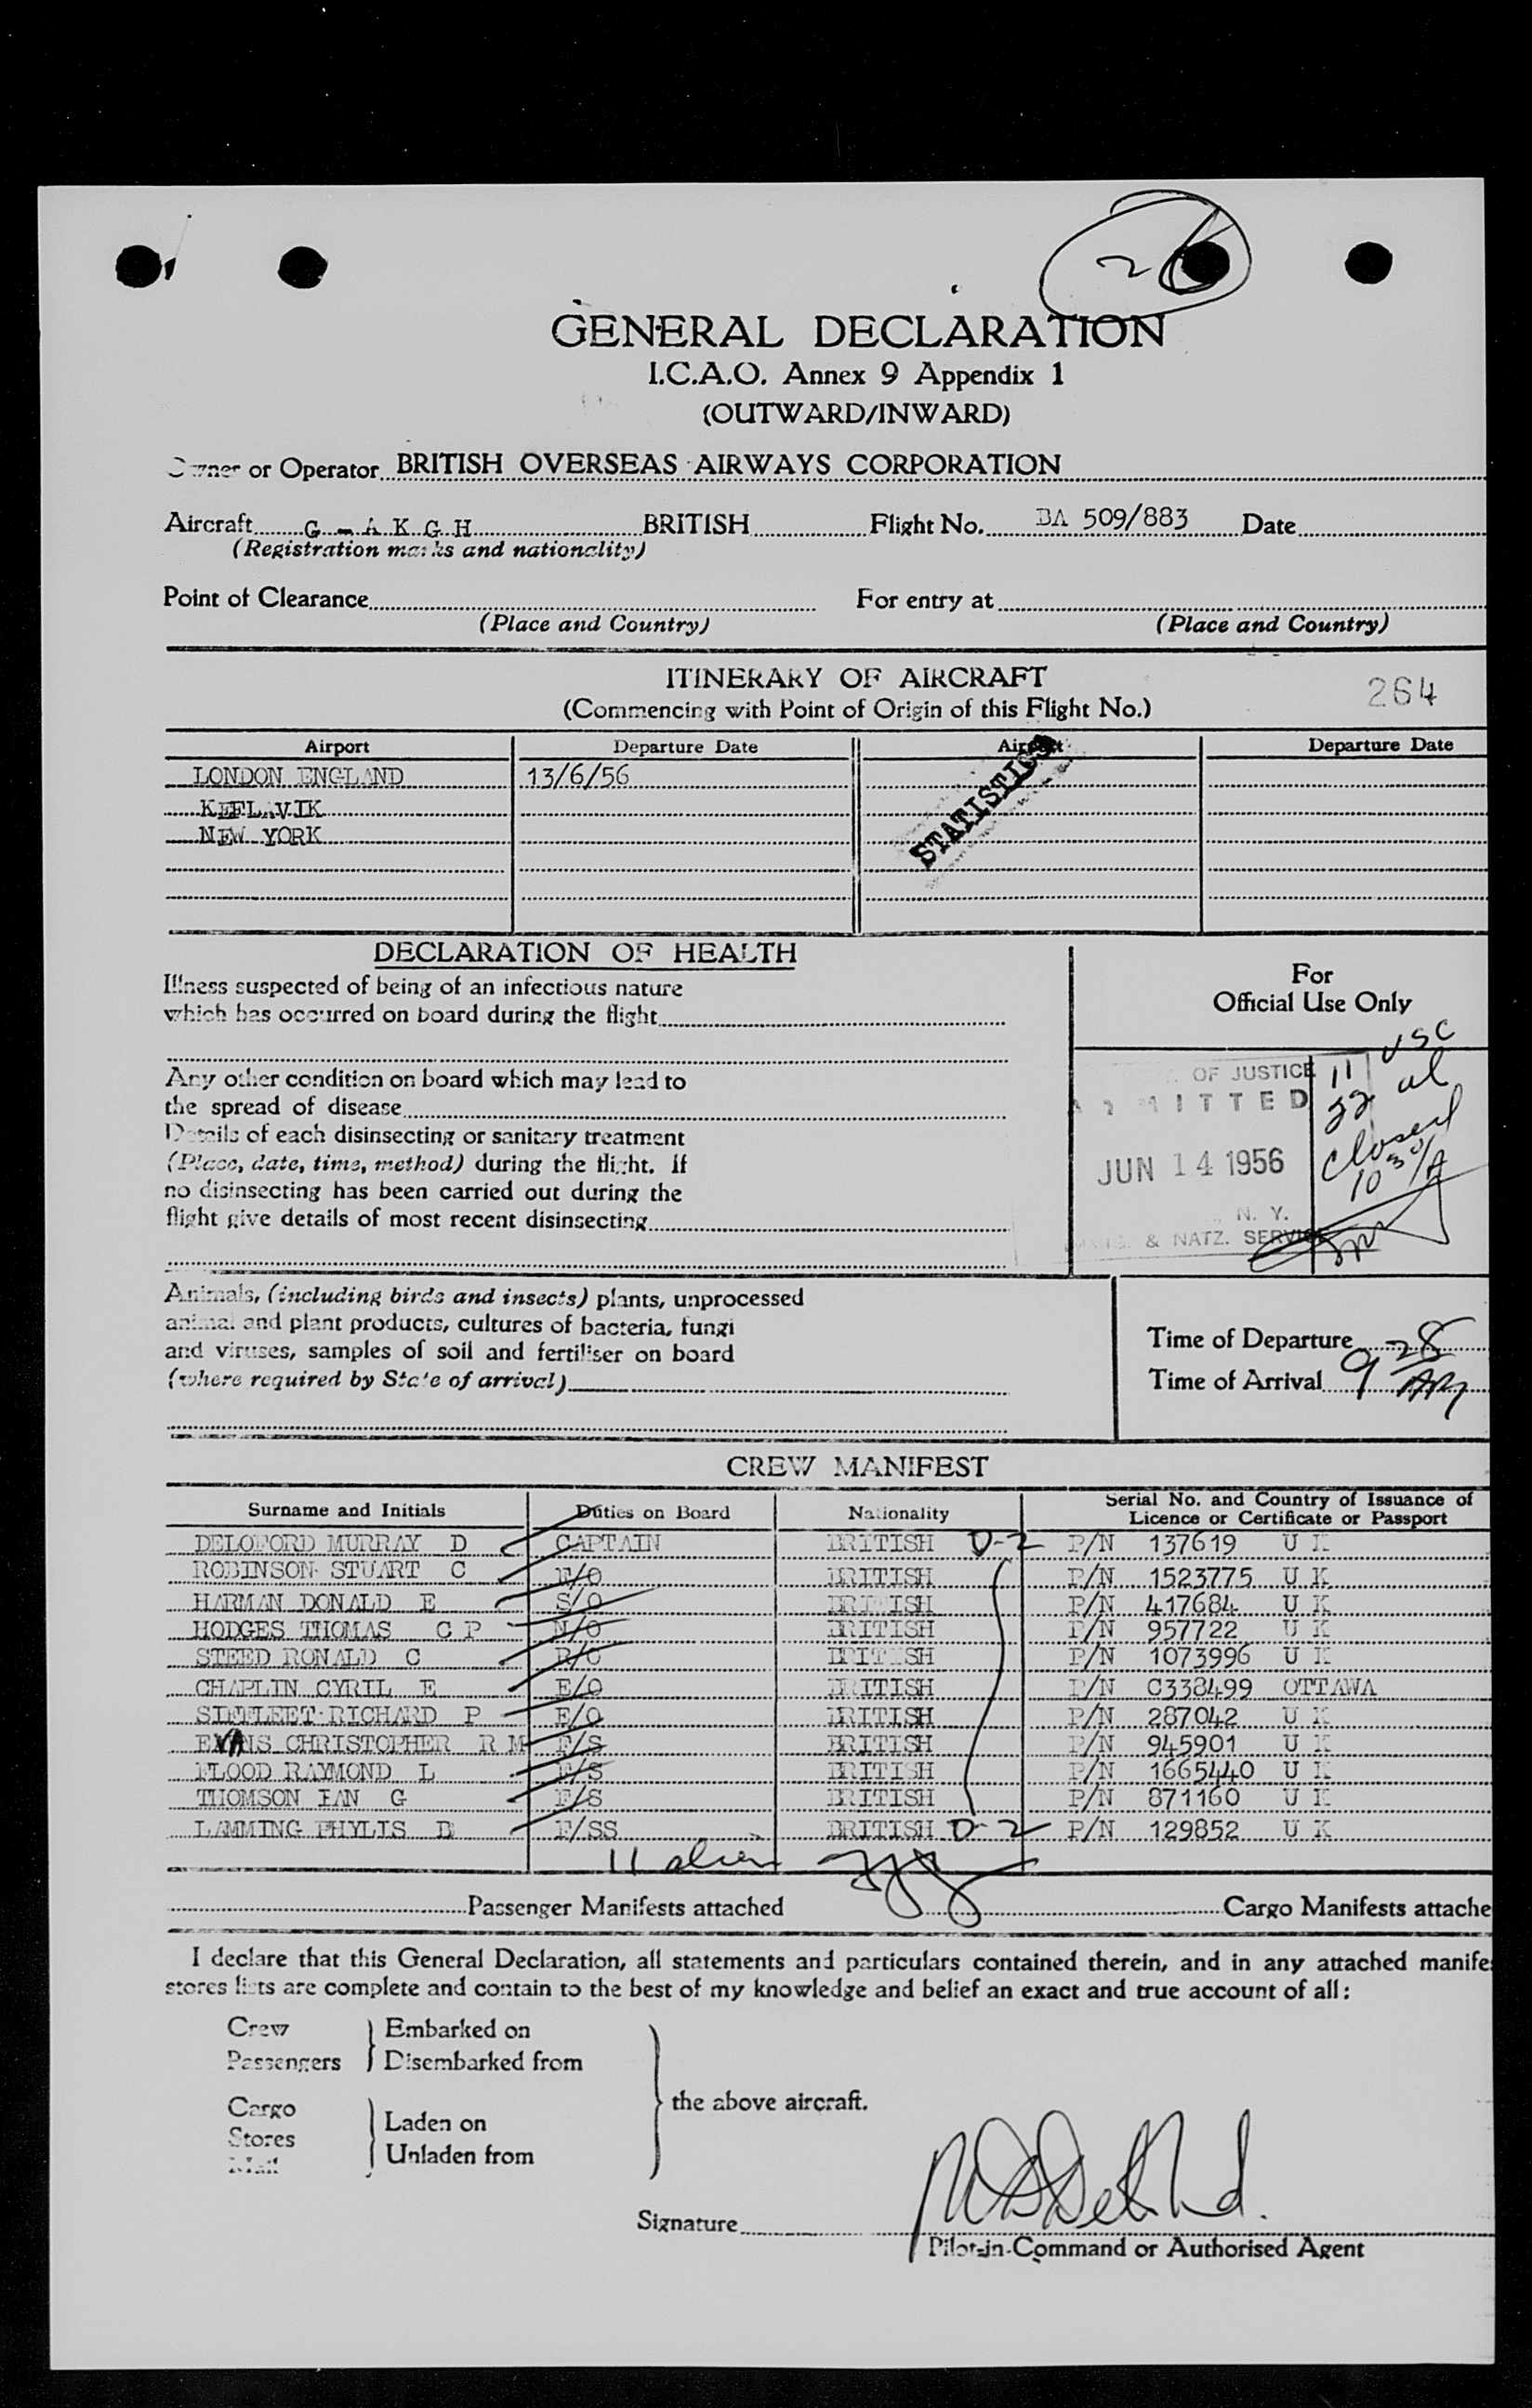 26
GENERAL DECLARATION
I.C.A.O. Annex 9 Appendix 1
(OUTWARD/INWARD)
Owner or Operator BRITISH OVERSEAS AIRWAYS CORPORATION
Aircraft G - A K G H BRITISH Flight No. BA 509/883 Date
(Registration marks and nationality)
Point of Clearance For entry at
(Place and Country) (Place and Country)
ITINERARY OF AIRCRAFT
(Commencing with Point of Origin of this Flight No.)
264
Airport Departure Date Airport Departure Date
LONDON ENGLAND 13/6/56
KEFLAVIK
NEW YORK
STATISTICS
DECLARATION OF HEALTH
Illness suspected of being of an infectious nature
which has occurred on board during the flight
Any other condition on board which may lead to
the spread of disease
Details of each disinsecting or sanitary treatment
(Place, date, time, method) during the flight. If
no disinsecting has been carried out during the
flight give details of most recent disinsecting
For
Official Use Only
OF JUSTICE
ADMITTED
JUN 14 1956
N. Y.
& NATZ. SERVICE
11 USC
32 al
closed
10 30/A
Animals, (including birds and insects) plants, unprocessed
animal and plant products, cultures of bacteria, fungi
and viruses, samples of soil and fertiliser on board
(where required by State of arrival)
Time of Departure
Time of Arrival 9 28 AM
CREW MANIFEST
Surname and Initials Duties on Board Nationality Serial No. and Country of Issuance of Licence or Certificate or Passport
DELOFORD MURRAY D CAPTAIN BRITISH D-2 P/N 137619 U K
ROBINSON STUART C F/O BRITISH P/N 1523775 U K
HARMAN DONALD E S/O BRITISH P/N 417684 U K
HODGES THOMAS C P N/O BRITISH P/N 957722 U K
STEED RONALD C R/O BRITISH P/N 1073996 U K
CHAPLIN CYRIL E E/O BRITISH P/N C338499 OTTAWA
SIEFLEET RICHARD P E/O BRITISH P/N 287042 U K
EVANS CHRISTOPHER R M F/S BRITISH P/N 945901 U K
FLOOD RAYMOND L F/S BRITISH P/N 1665440 U K
THOMSON IAN G F/S BRITISH P/N 871160 U K
LAMMING PHYLIS B F/SS BRITISH D-2 P/N 129852 U K
11
Passenger Manifests attached Cargo Manifests attache
I declare that this General Declaration, all statements and particulars contained therein, and in any attached manife
stores lists are complete and contain to the best of my knowledge and belief an exact and true account of all:
Crew Embarked on
Passengers Disembarked from
the above aircraft.
Cargo Laden on
Stores
Mail Unladen from
Signature
Pilot-in-Command or Authorised Agent